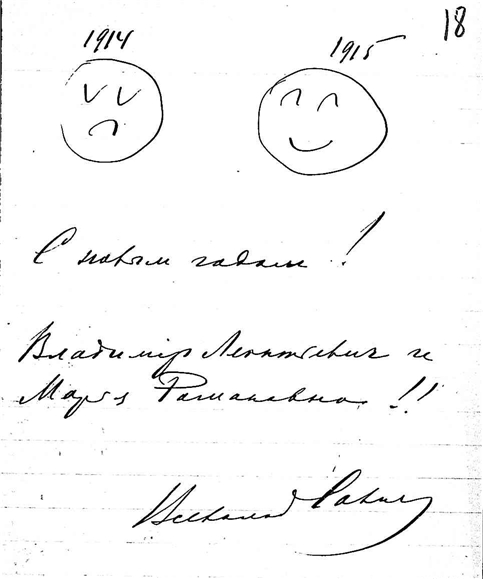 18
1914 1915
С новым годом!
Владимир Леонтьевич и
Мария Романовна!!
Всеволод